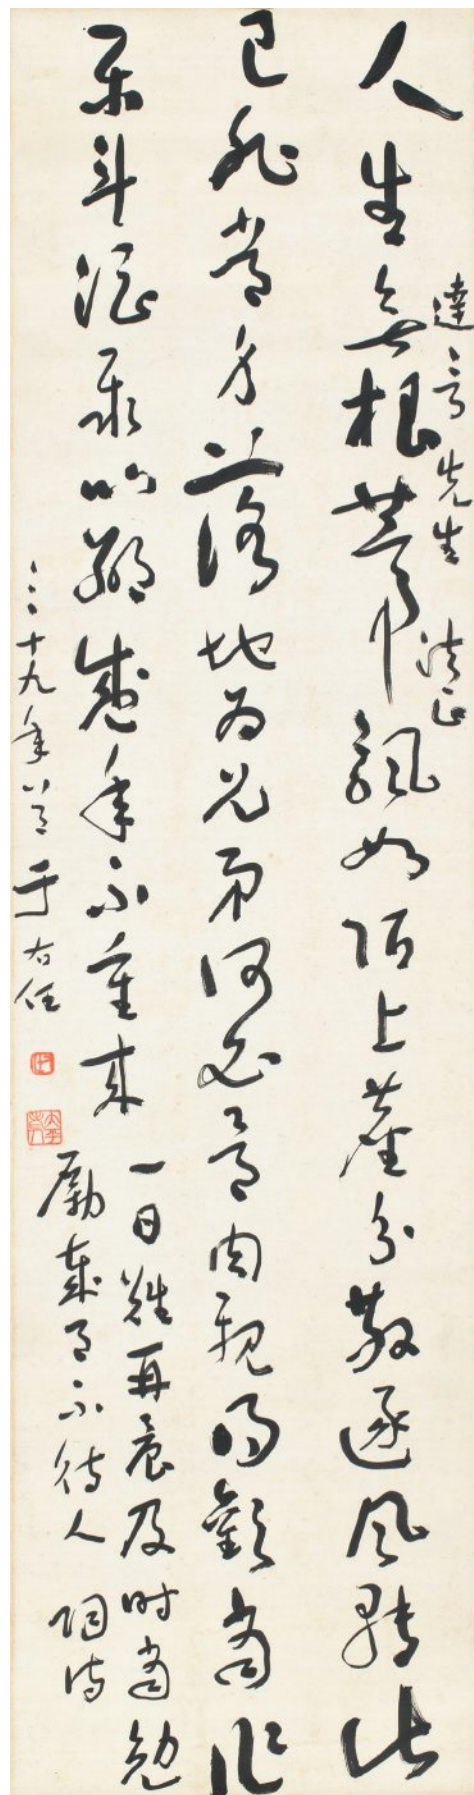 達先生法正
人生無根蒂飄如陌上塵分散逐風轉此
已非常身落地為兄弟何必骨肉親得歡當作
樂斗酒聚比鄰盛年不重來
一日難再晨及時當勉
勵歲月不待人 陶詩
三十九年于右任